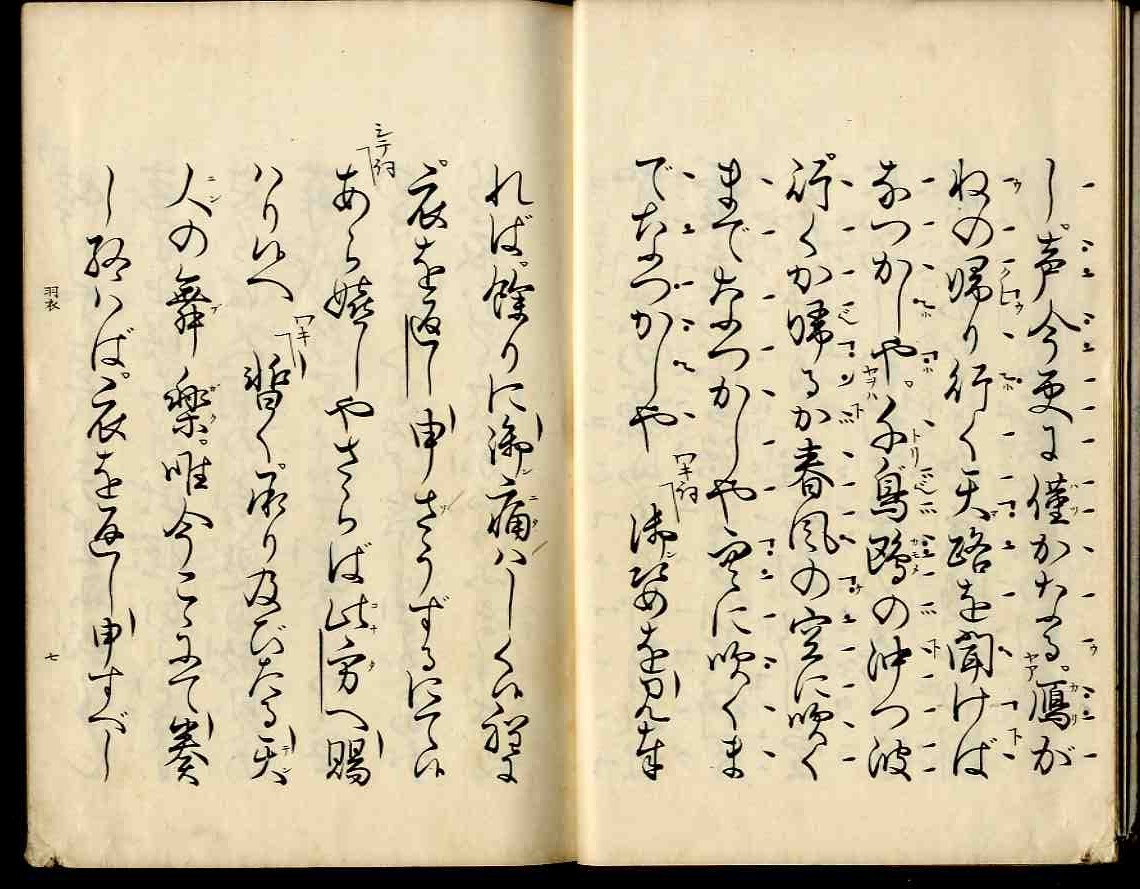 し。声今更に僅かなる。雁が
ねの帰り行く天路を聞けば
なつかしや。千鳥鴎の沖つ波
行くか帰るか春風の空に吹く
までなつかしや空に吹くま
でなつかしや
ワキ詞
御姿を見奉
れば。餘りに御痛はしく候程に
衣を返し申さうずるにて候
シテ詞
あら嬉しやさらば此方へ賜
はり候へ
ワキ
暫く。承り及びたる天
人の舞樂。唯今こゝにて奏
し給はば。衣を返し申すべし
羽衣
七